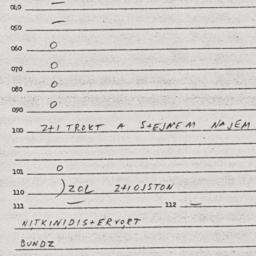 040 —
050 —
060 0
070 0
080 0
090 0
100 2+1 TROKT A S+EJMEM NAJEM
101 0
110 )ZOL 2+10JSTON
111 — 112 —
NITKINIDIS+ERVORT
BUNDZ